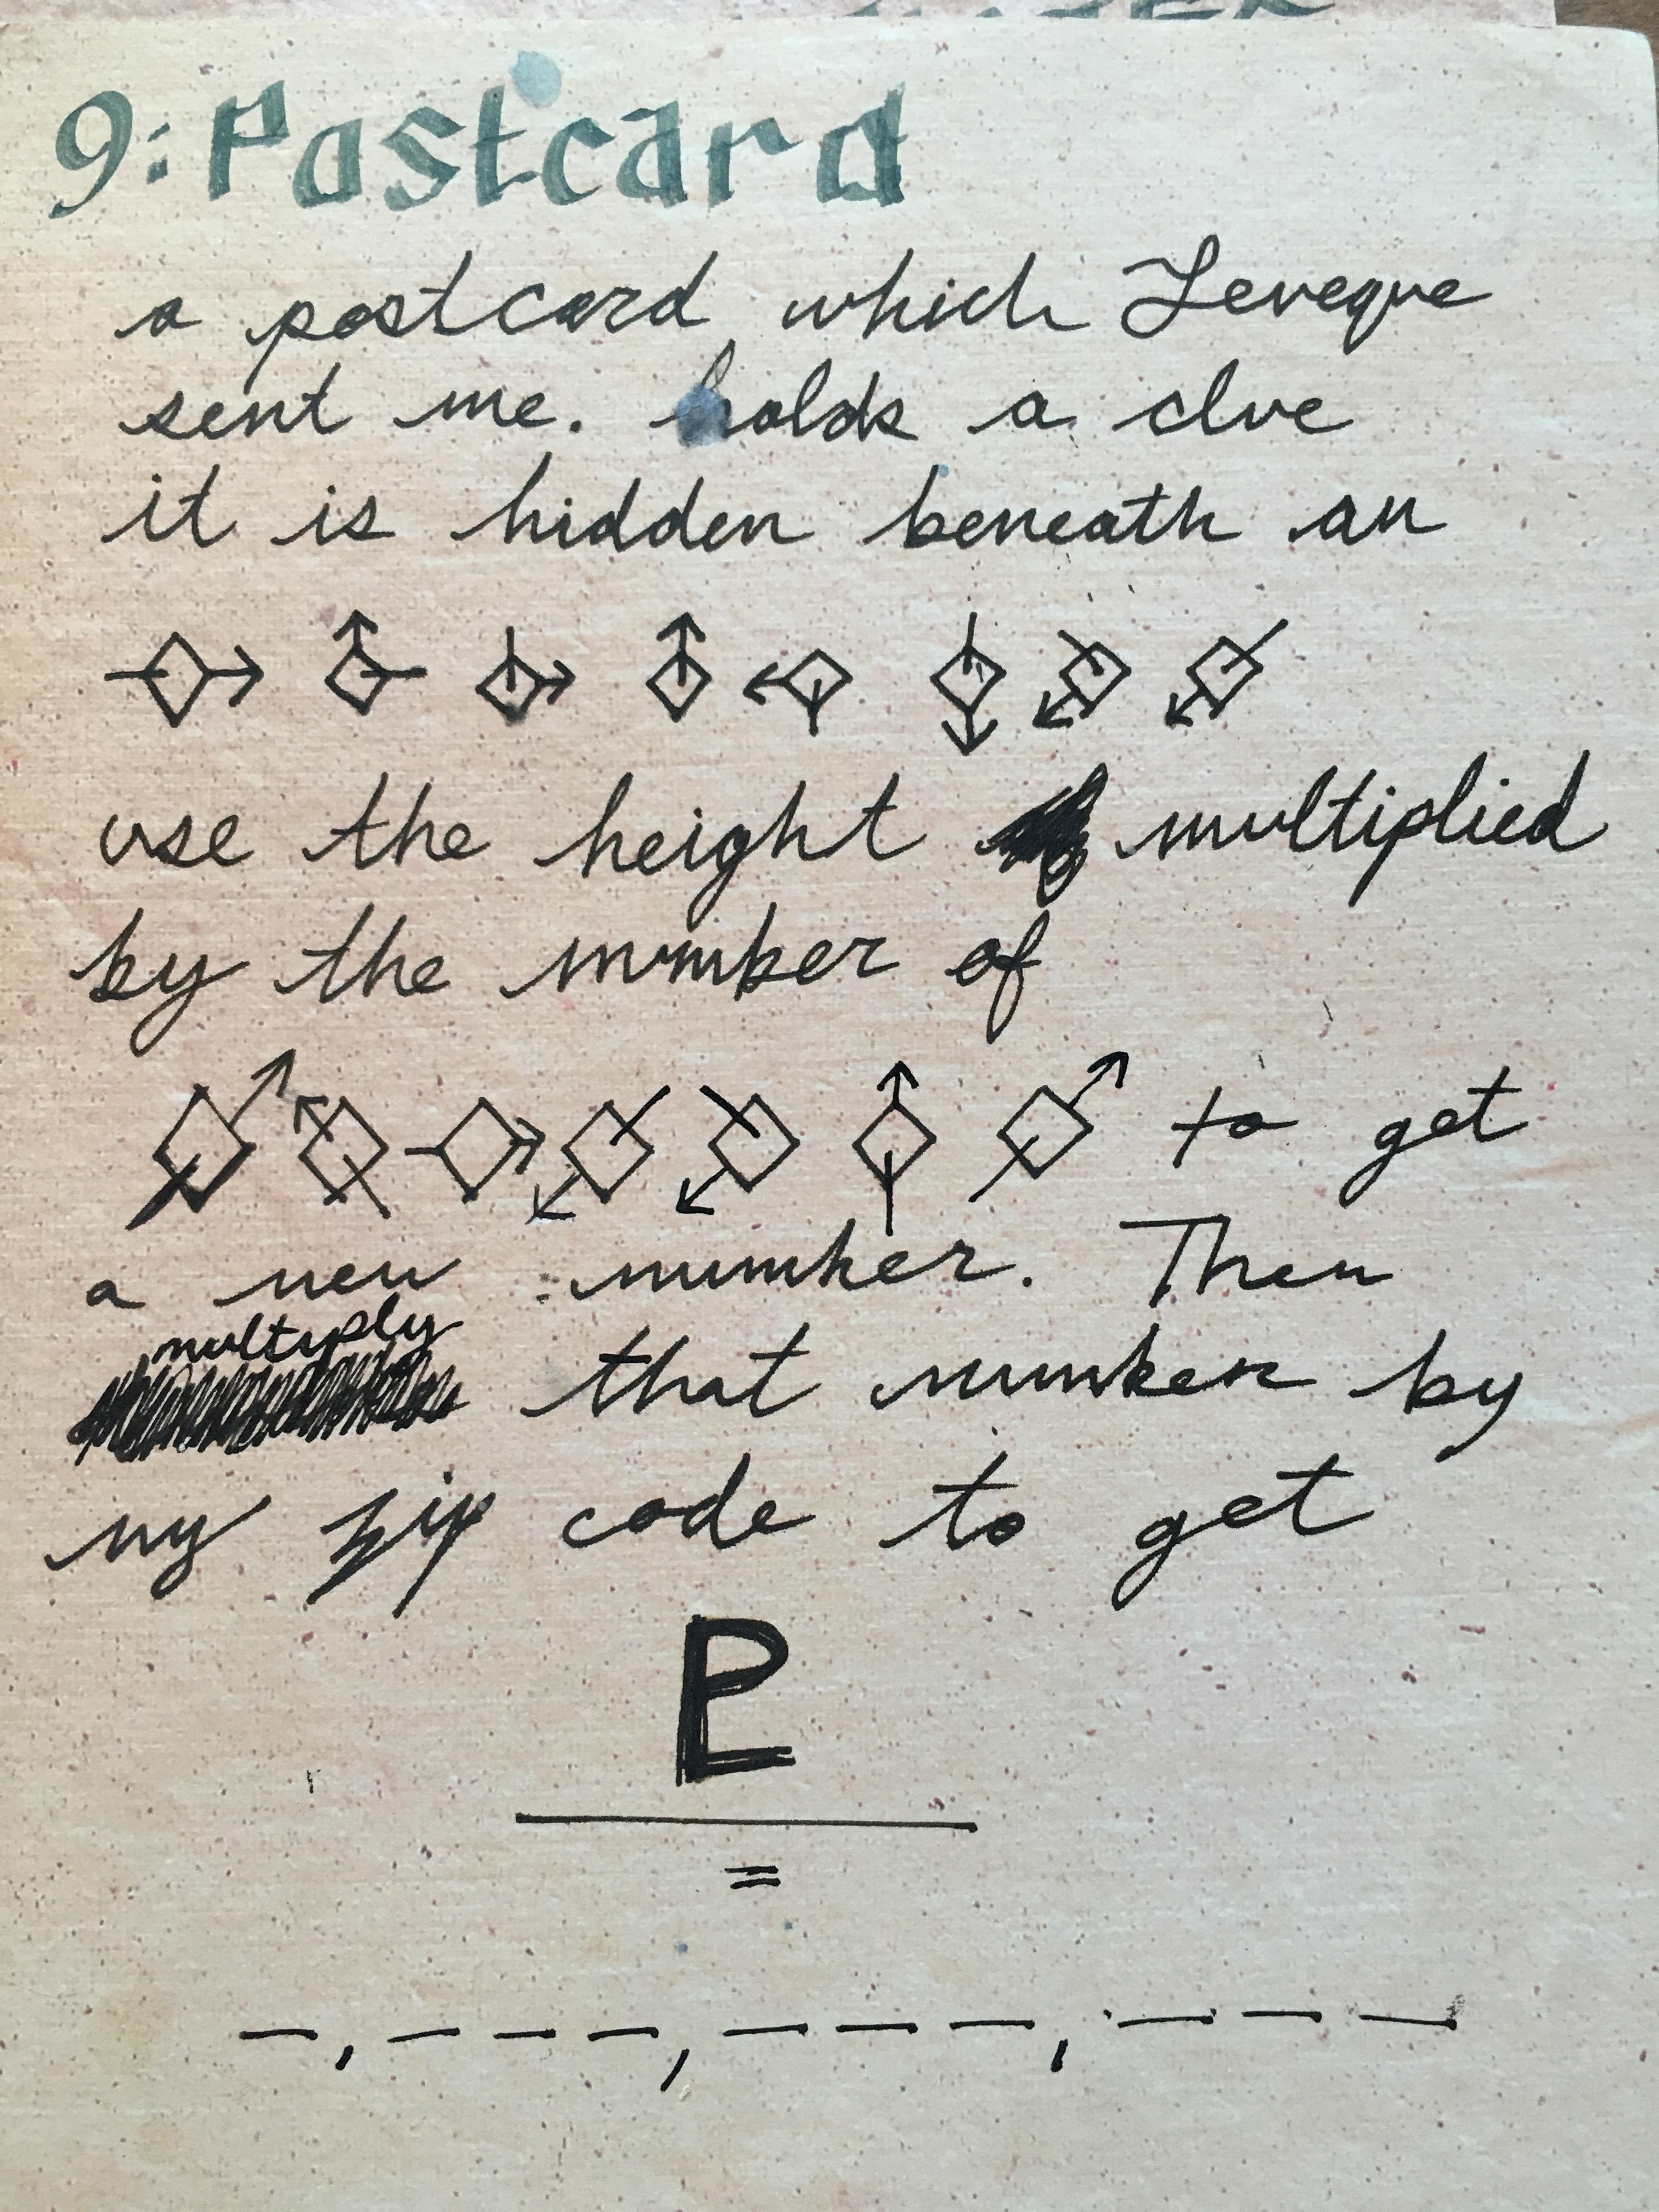 9: Postcard
a postcard which Leveque
sent me. holds a clue
it is hidden beneath an
use the height multiplied
by the number of
to get
a new number. Then
multiply that number by
my zip code to get
P
=
_,___,___,___